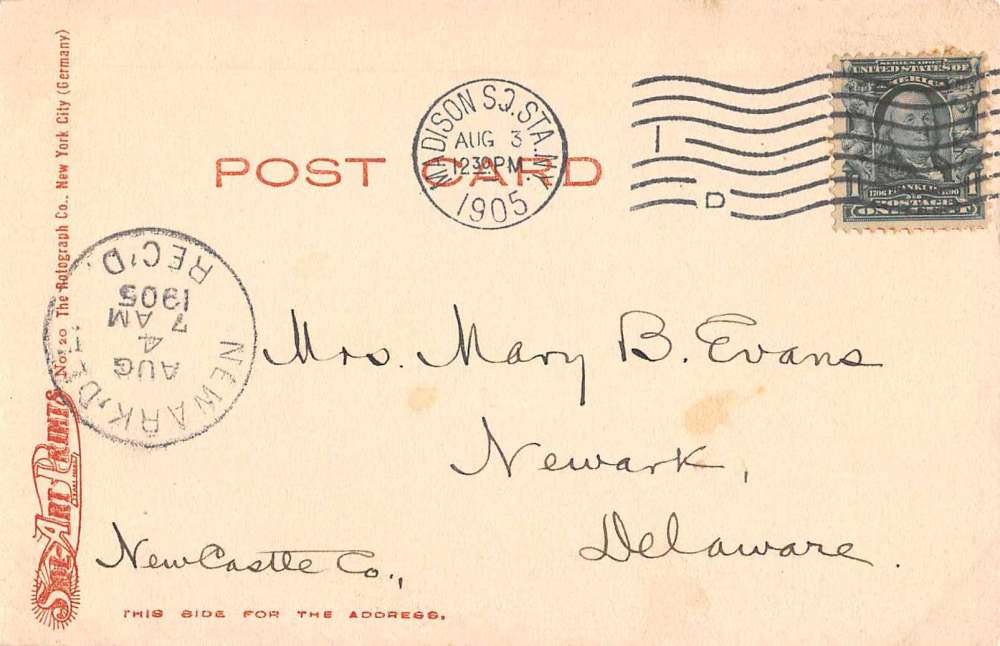 SERIES 1902
UNITED STATES OF AMERICA
MADISON SQ. STA. N.Y.
AUG 3
12 30 PM
1905
D
POST CARD
1706 FRANKLIN 1790
POSTAGE
ONE CENT
NEWARK, DEL.
AUG
4
7 AM
1905
REC'D.
No. 20 The Rotograph Co., New York City (Germany)
SOL-ART PRINTS
Mrs. Mary B. Evans
Newark,
Delaware.
New Castle Co.,
THIS SIDE FOR THE ADDRESS.